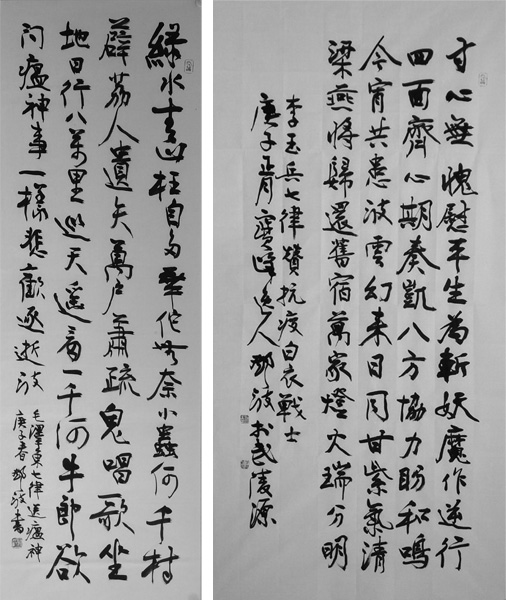 綠水青山枉自多華佗無奈小蟲何千村
薜荔人遺矢萬戶蕭疏鬼唱歌坐
地日行八萬里巡天遙看一千河牛郎欲
問瘟神事一樣悲歡逐逝波
毛澤東七律送瘟神
庚子春鄧波書
寸心無愧慰平生為斬妖魔作逆行
四面齊心期奏凱八方協力盼和鳴
今宵共患波雲幻來日同甘紫氣清
梁燕將歸還舊宿萬家燈火瑞分明
李玉兵七律贊抗疫白衣戰士
庚子正月寶峰逸人鄧波於武陵源